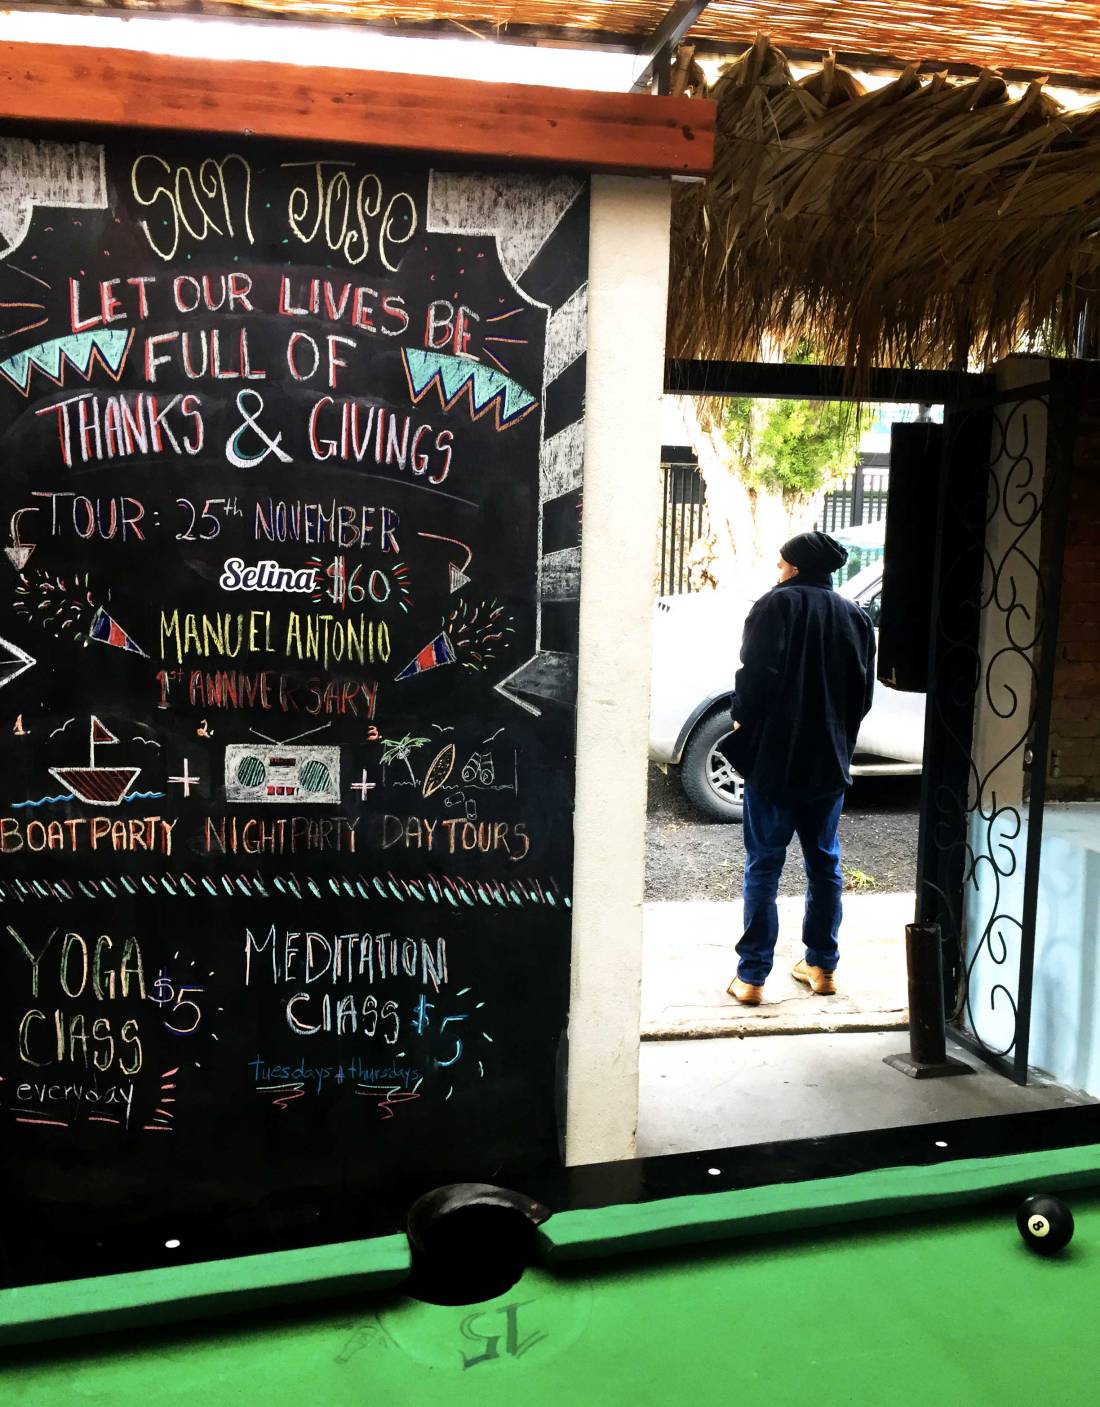 San Jose
LET OUR LIVES BE
FULL OF
THANKS & GIVINGS
TOUR: 25th NOVEMBER
Selina $60
MANUEL ANTONIO
1st ANNIVERSARY
1. 2. 3.
+ +
BOAT PARTY NIGHT PARTY DAY TOURS
YOGA $5
ClASS
everyday
MEDITATION
ClASS $5
tuesdays + thursdays
8
15